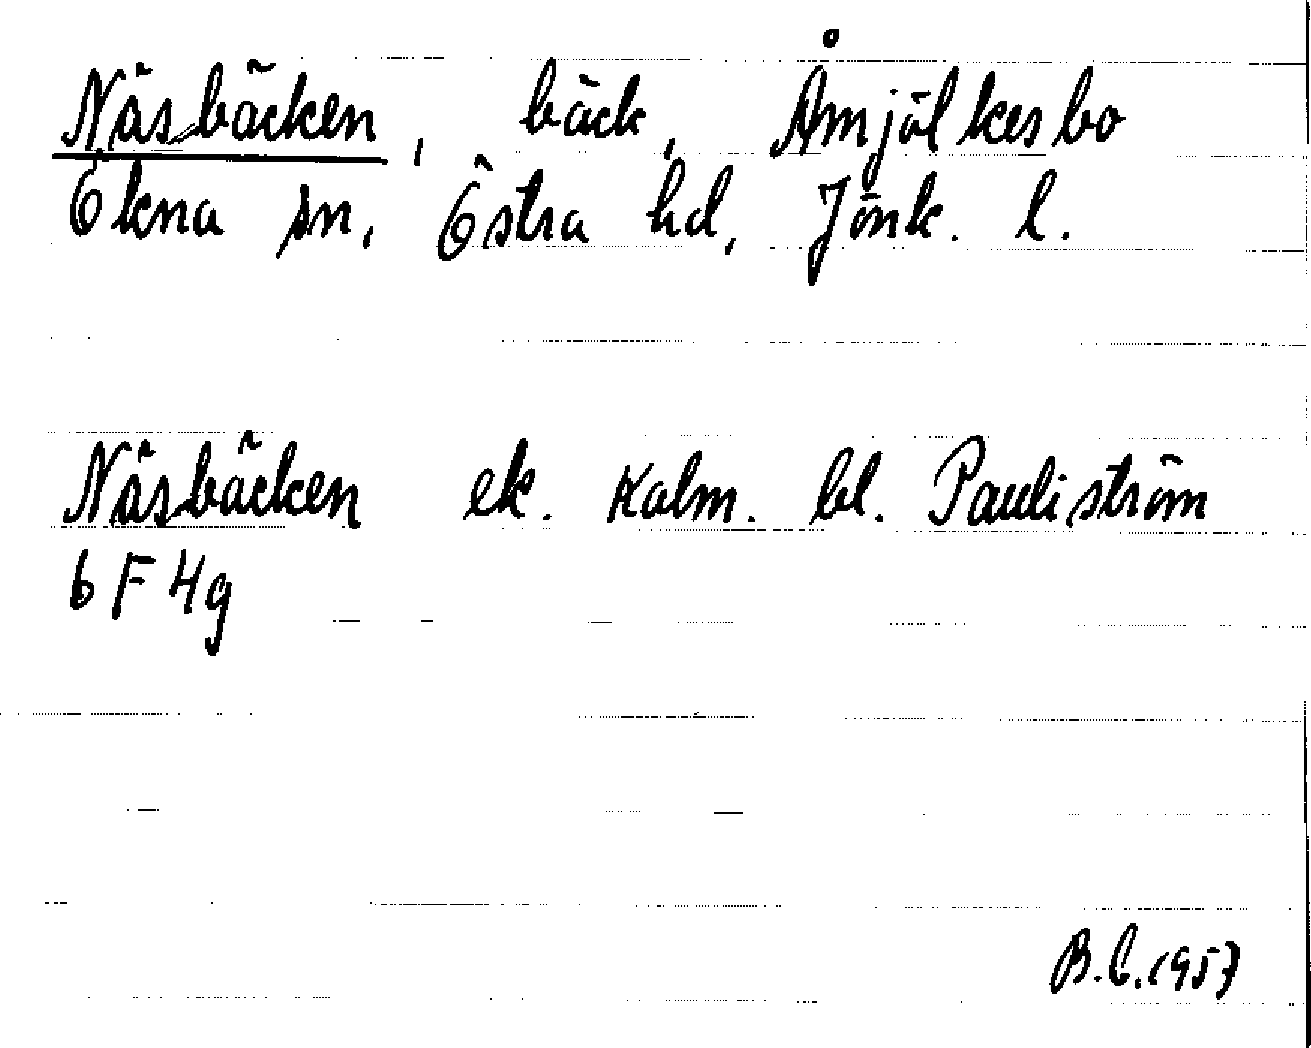 Näsbäcken, bäck, Åmjölkesbo
Ökna sn, Östra hd, Jönk. l.
Näsbäcken ek. Kalm. bl. Pauliström
6 F 4g
B.C.1957